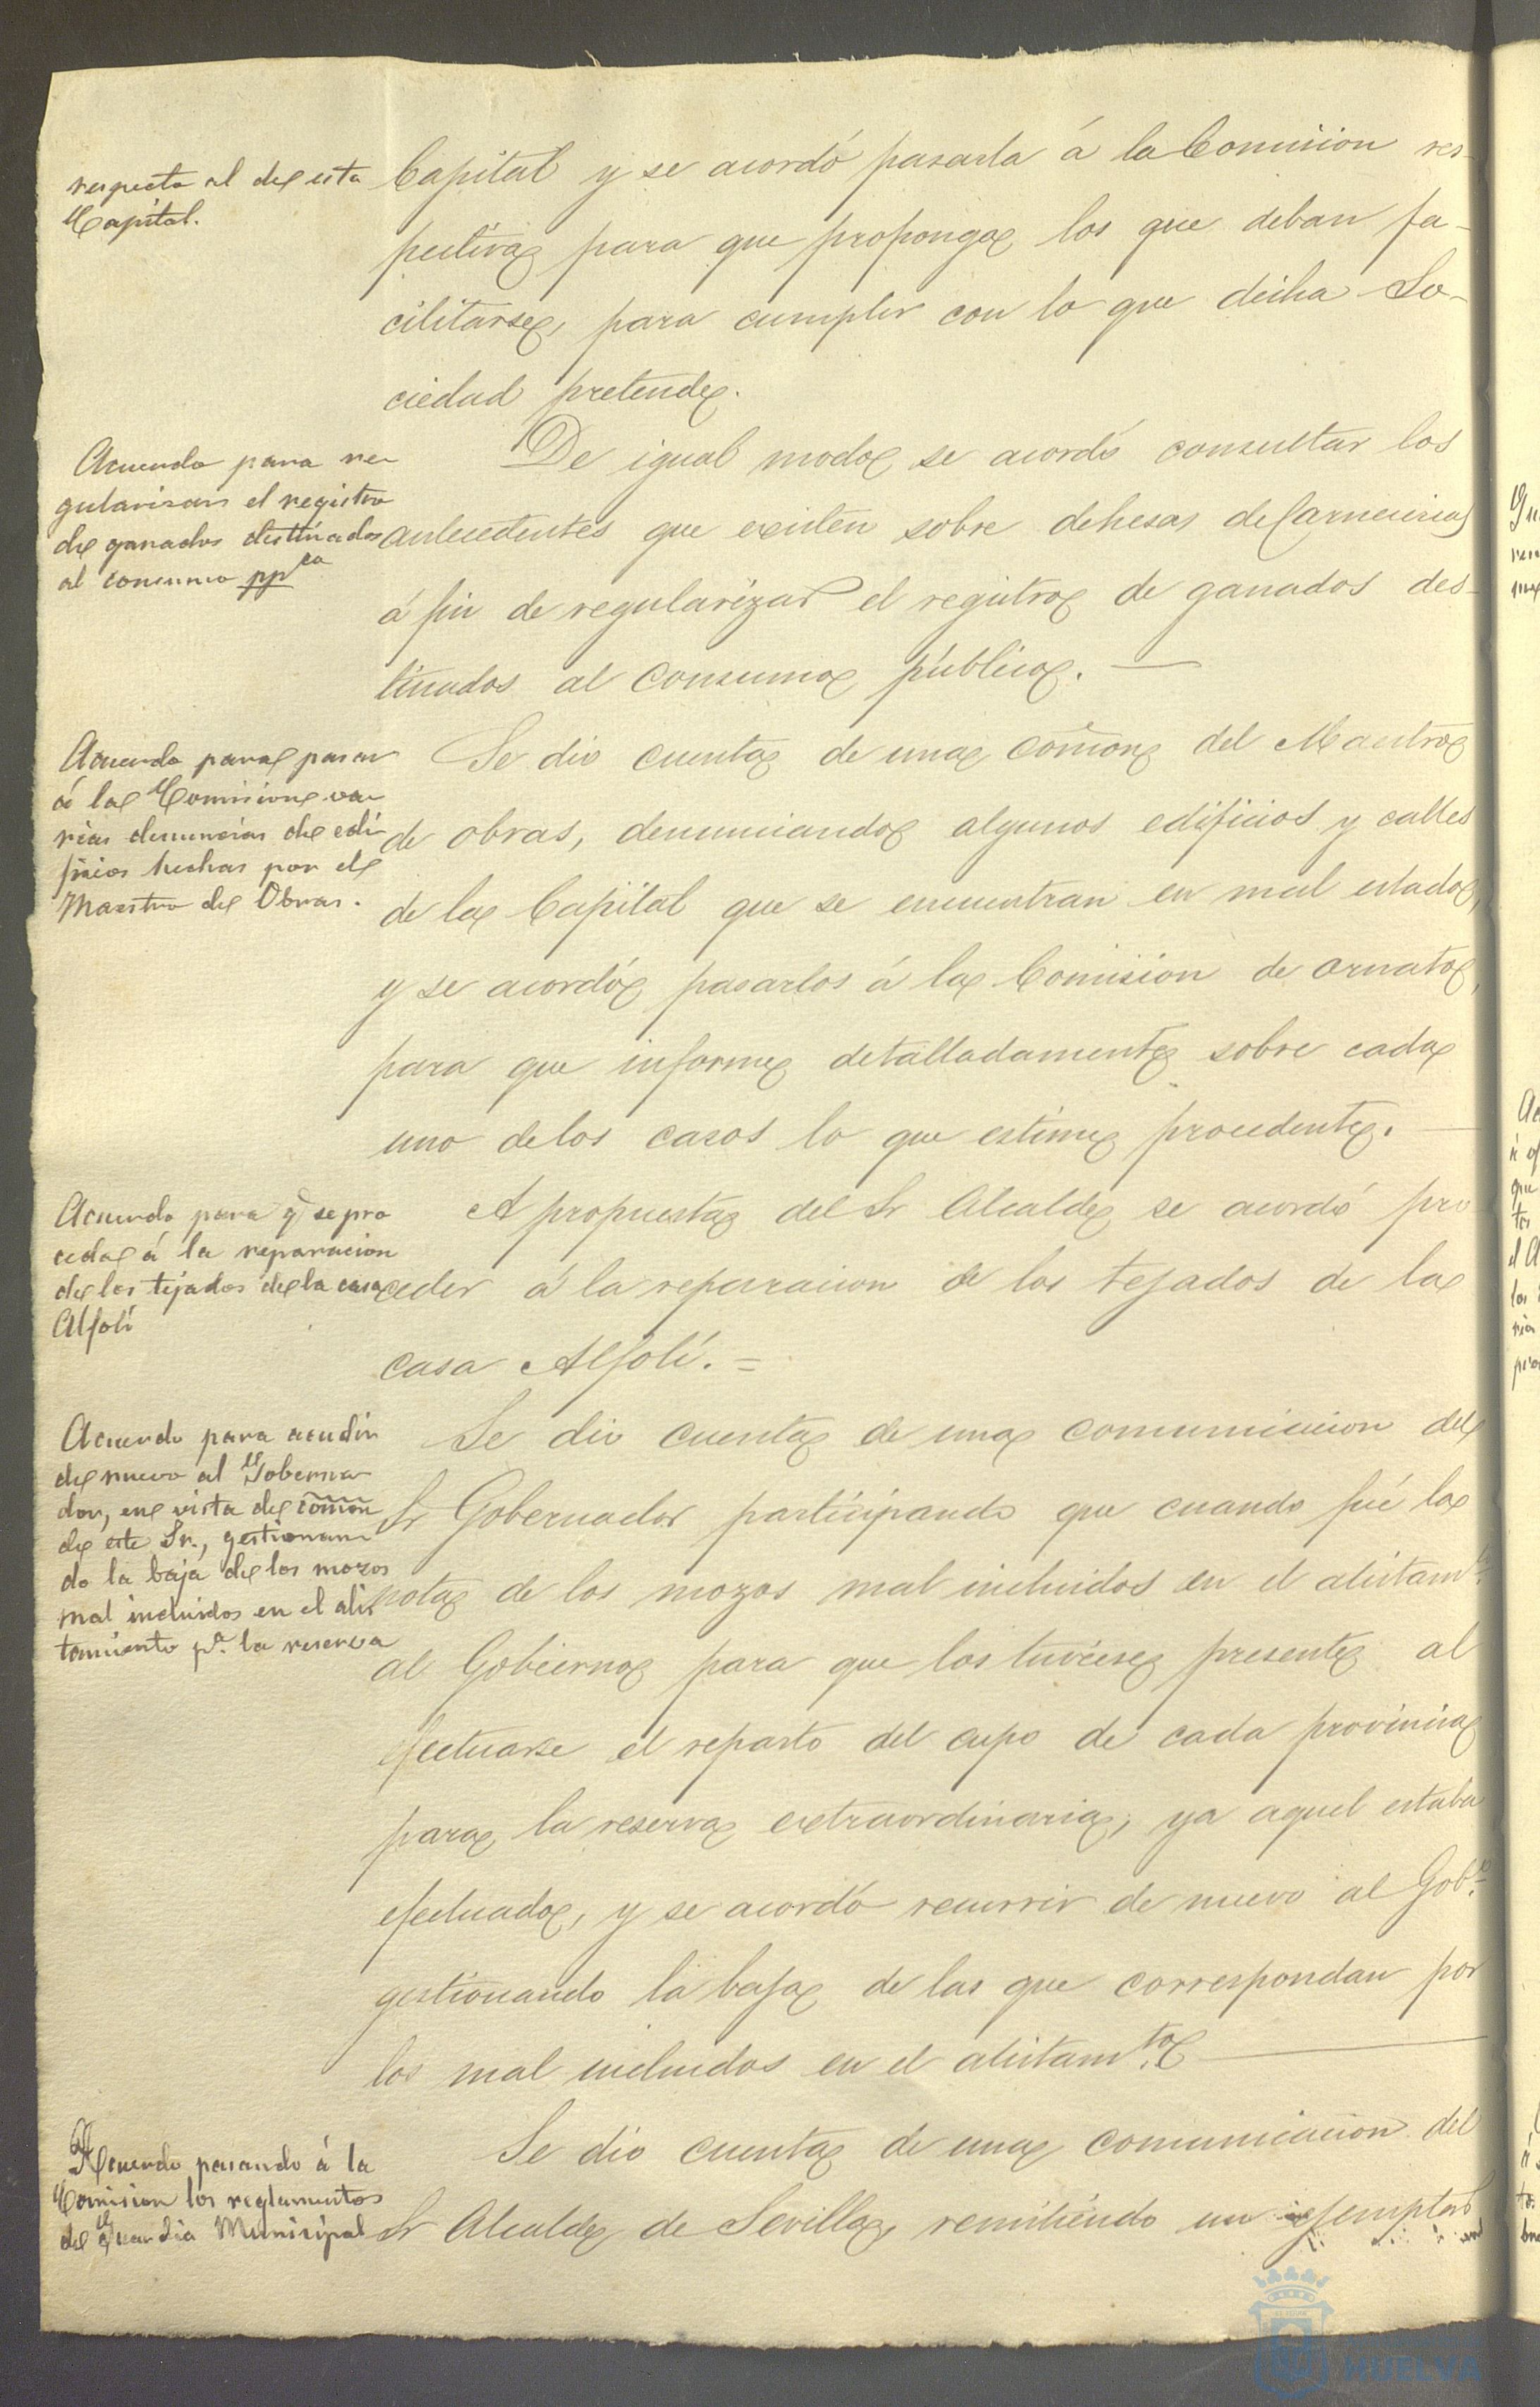 respecto al de esta
Capital.
Capital y se acordó pasarla á la Comision res-
pectiva para que proponga los que deban fa-
cilitarse, para cumplir con lo que dicha So-
ciedad pretende.
Acuerdo para re-
gularizar el registro
de ganados destinados
al consumo pp.co
De igual modo se acordó consultar los
antecedentes que existen sobre dehesas de Carnicerias
á fin de regularizar el registro de ganados des-
tinados al consumo público. —
Acuerdo para pasar
á la Comision va-
rias denuncias de edi-
ficios hechas por el
Maestro de Obras.
Se dio cuenta de una comon del Maestro
de obras, denunciando algunos edificios y calles
de la Capital que se encuentran en mal estado,
y se acordó pasarlos á la Comision de ornato,
para que informe detalladamente sobre cada
uno de los casos lo que estime procedente. —
Acuerdo para q se pro
ceda á la reparacion
de los tejados de la casa
Alfolí
A propuesta del Sr Alcalde se acordó pro
ceder á la reparacion de los tejados de la
casa Alfolí. =
Acuerdo para acudir
de nuevo al Goberna-
dor, en vista de comon
de este Sr., gestionan-
do la baja de los mozos
mal incluidos en el alis
tamiento pa. la reserva
Se dio cuenta de una comunicacion del
Sr Gobernador participando que cuando fué la
nota de los mozos mal incluidos en el alistam.to
al Gobierno para que los tuviese presente al
efectuarse el reparto del cupo de cada provincia
para la reserva extraordinaria, ya aquel estaba
efectuado, y se acordó recurrir de nuevo al Gob.o
gestionando la baja de las que correspondan por
los mal incluidos en el alistam.to —
Acuerdo pasando á la
Comision los reglamentos
de Guardia Municipal
Se dio cuenta de una comunicacion del
Sr Alcalde de Sevilla, remitiendo un ejemplar
HUELVA